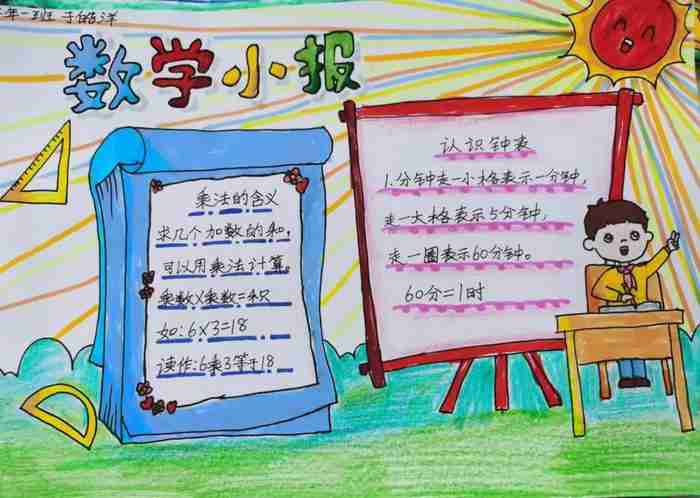 年一班 于皓洋
数学小报
乘法的含义
求几个加数的和，
可以用乘法计算。
乘数×乘数=积
如：6×3=18
读作：6乘3等于18
认识钟表
1.分钟走一小格表示一分钟，
走一大格表示5分钟，
走一圈表示60分钟。
60分=1时